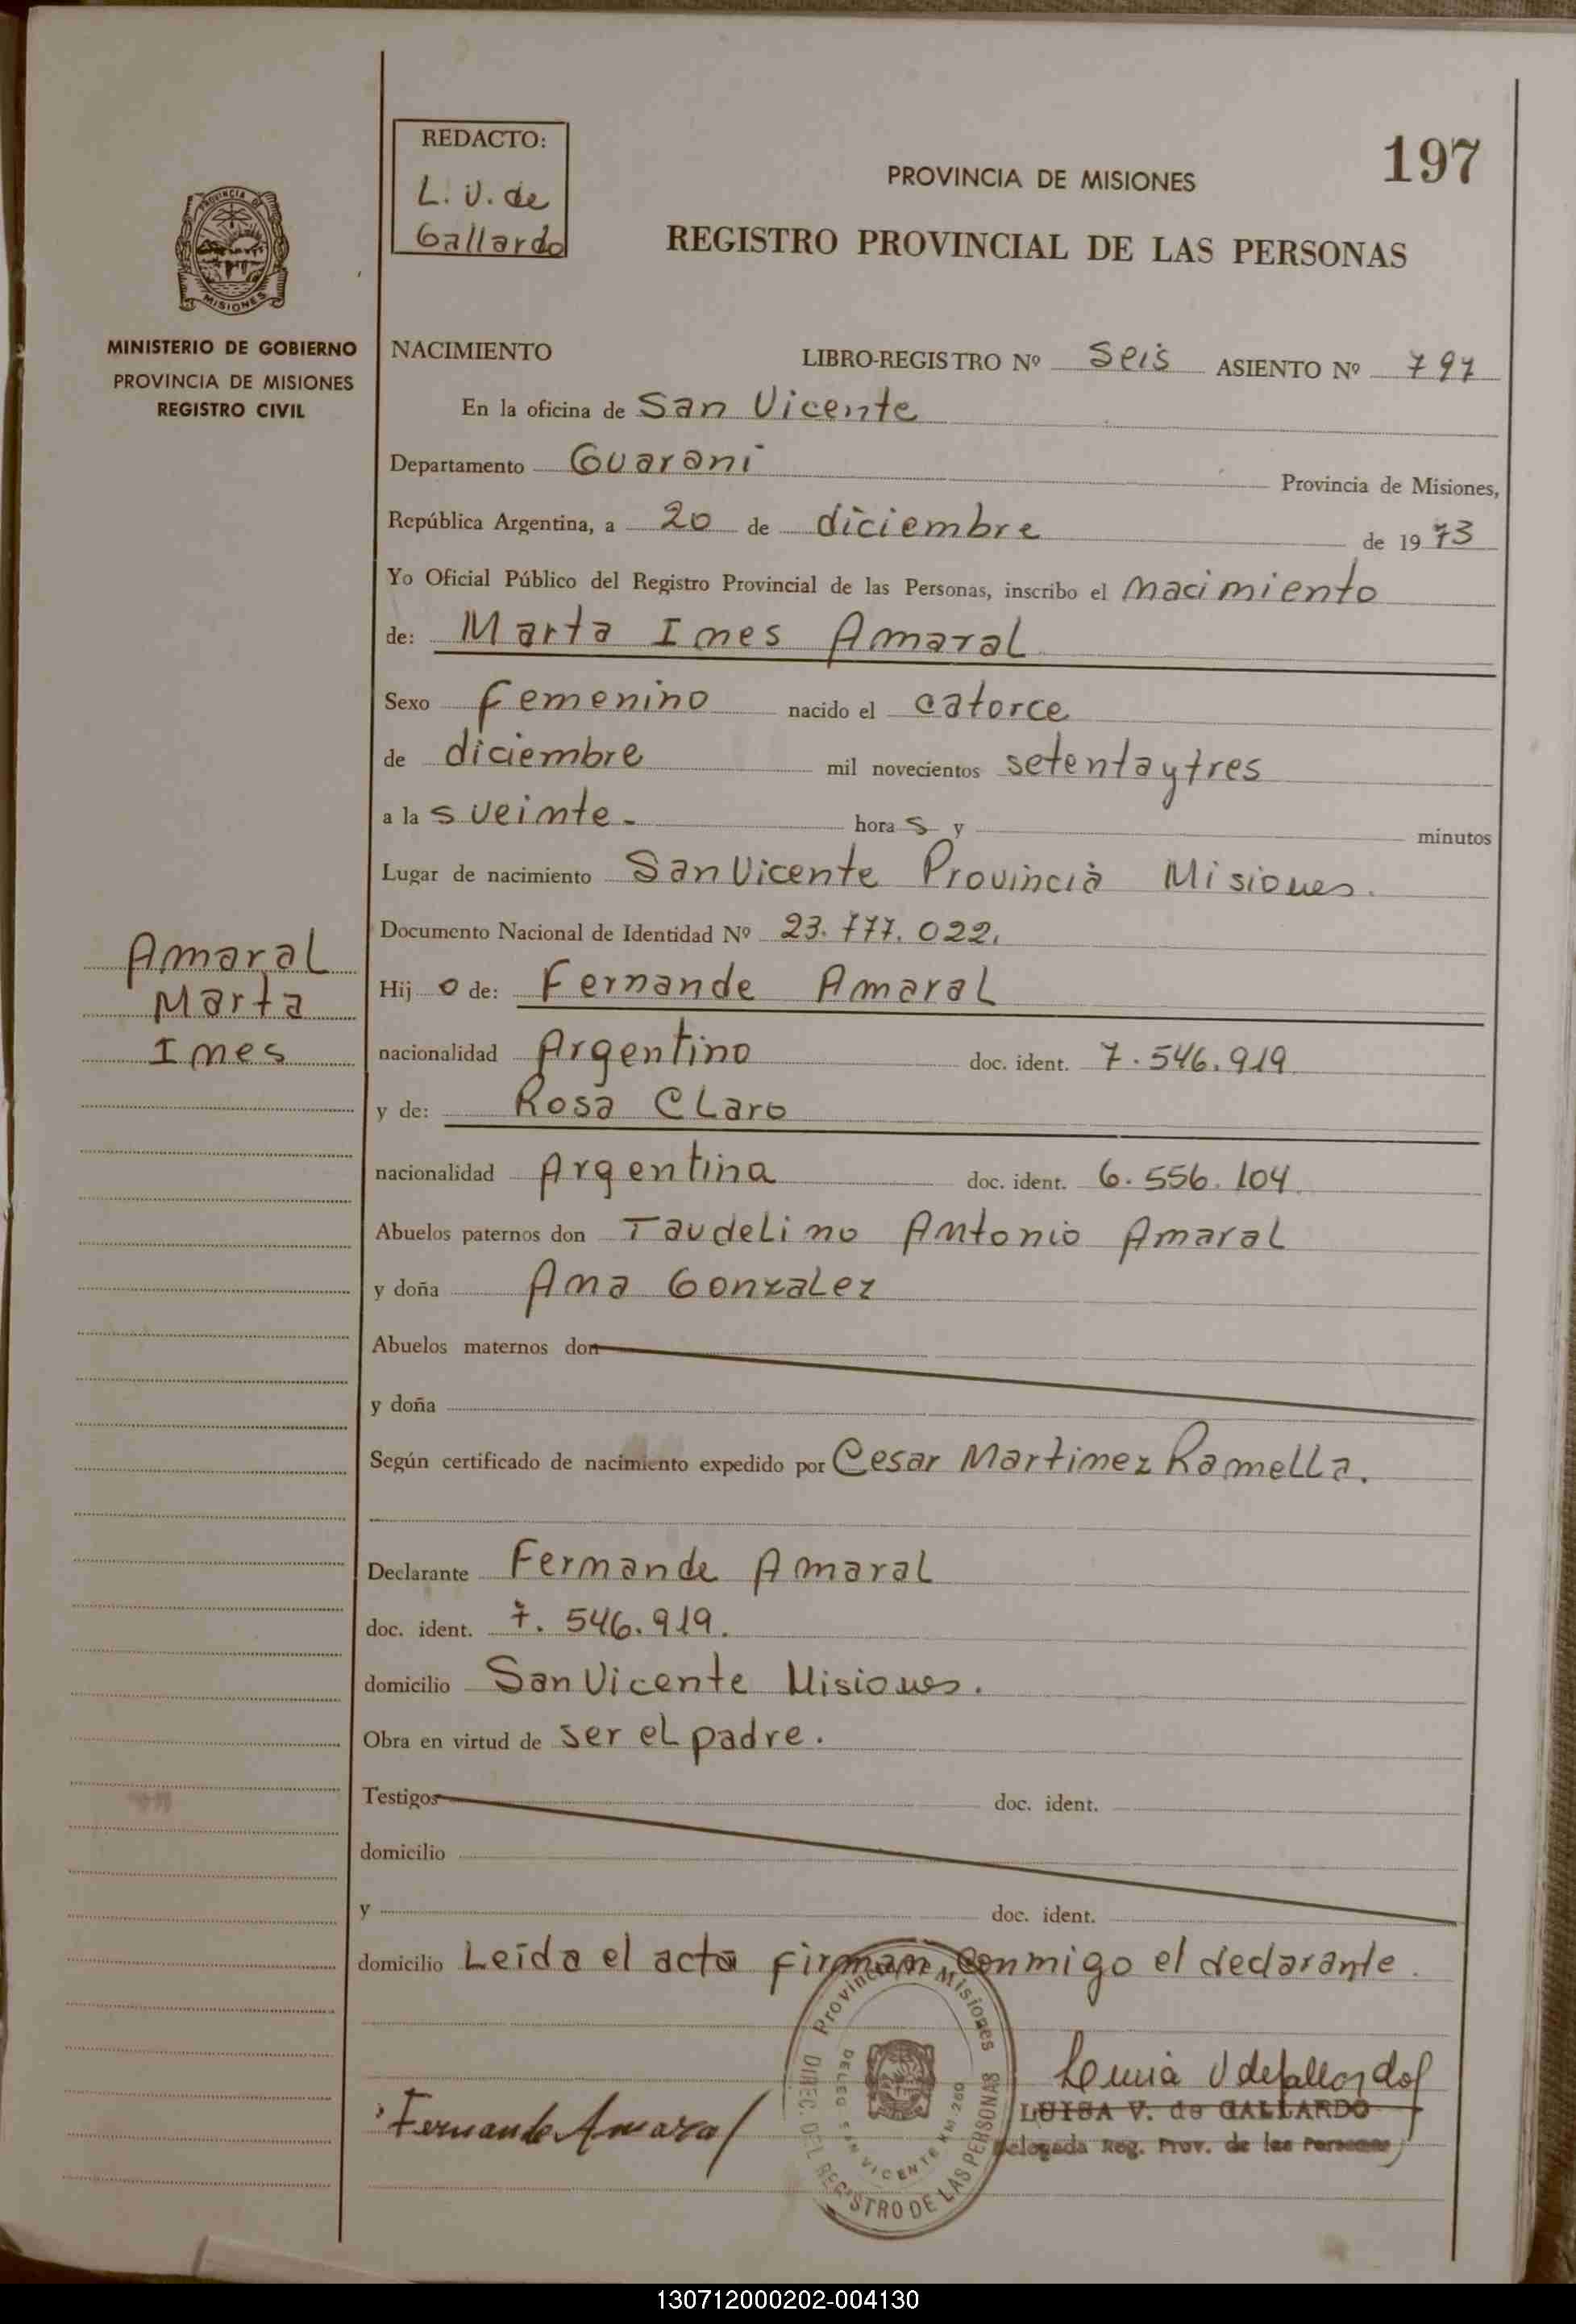 REDACTO:
L. V. de
Gallardo
197
PROVINCIA DE MISIONES
REGISTRO PROVINCIAL DE LAS PERSONAS
PROVINCIA DE
MISIONES
MINISTERIO DE GOBIERNO
PROVINCIA DE MISIONES
REGISTRO CIVIL
NACIMIENTO LIBRO-REGISTRO Nº Seis ASIENTO Nº 797
En la oficina de San Vicente
Departamento Guarani Provincia de Misiones,
República Argentina, a 20 de diciembre de 1973
Yo Oficial Público del Registro Provincial de las Personas, inscribo el nacimiento
de: Marta Ines Amaral
Sexo femenino nacido el catorce
de diciembre mil novecientos setentaytres
a las veinte. horas y minutos
Lugar de nacimiento San Vicente Provincia Misiones.
Documento Nacional de Identidad Nº 23.777.022.
Amaral
Marta
Ines
Hijo de: Fernande Amaral
nacionalidad Argentino doc. ident. 7.546.919
y de: Rosa Claro
nacionalidad Argentina doc. ident. 6.556.104
Abuelos paternos don Taudelino Antonio Amaral
y doña Ana Gonzalez
Abuelos maternos don
y doña
Según certificado de nacimiento expedido por Cesar Martinez Ramella.
Declarante Fernande Amaral
doc. ident. 7.546.919.
domicilio San Vicente Misiones.
Obra en virtud de ser el padre.
Testigos doc. ident.
domicilio
y doc. ident.
domicilio Leída el acta firman conmigo el declarante.
Provincia de Misiones
DIREC. DEL REGISTRO DE LAS PERSONAS
DELEG. SAN VICENTE KM 260
Fernande Amaral
LUISA V. de GALLARDO
Delegada Reg. Prov. de las Personas
130712000202-004130